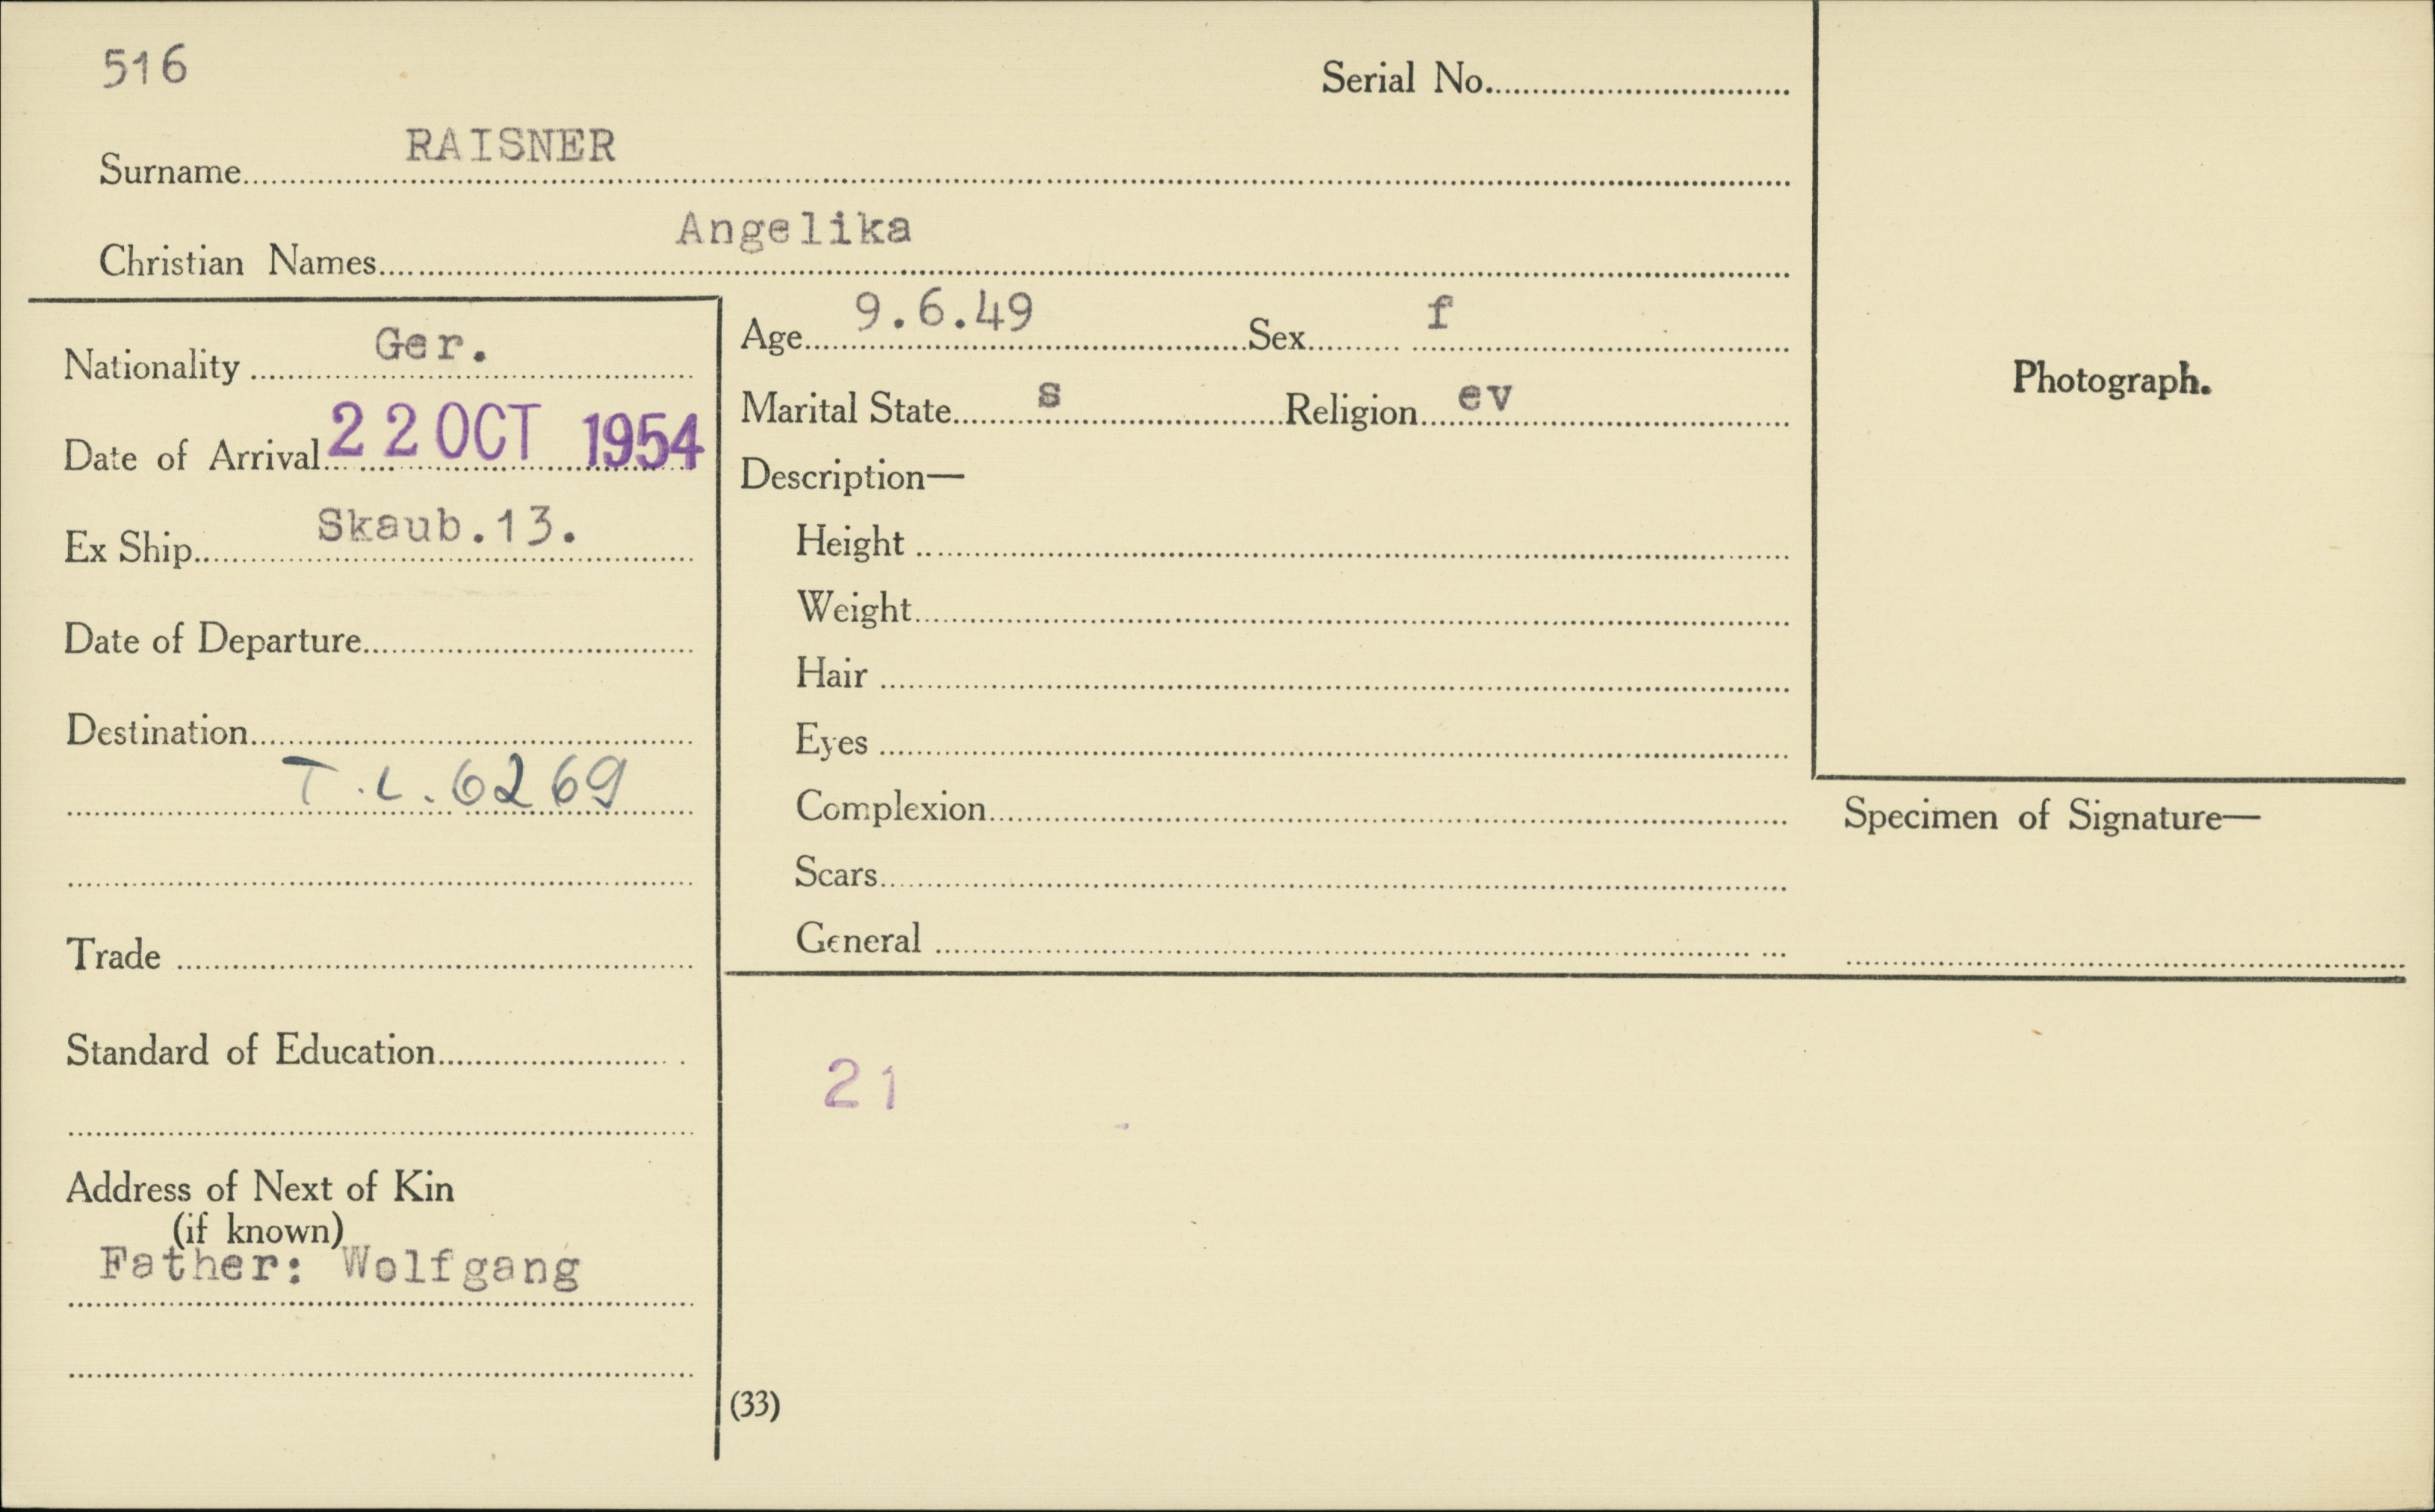 516
Serial No.
Surname RAISNER
Christian Names Angelika
Nationality Ger.
Date of Arrival 22 OCT 1954
Ex Ship Skaub.13.
Date of Departure
Destination
T.L. 6269
Trade
Standard of Education
Address of Next of Kin
(if known)
Father: Wolfgang
Age 9.6.49 Sex f
Marital State s Religion ev
Description—
Height
Weight
Hair
Eyes
Complexion
Scars
General
Photograph.
Specimen of Signature—
21
(33)